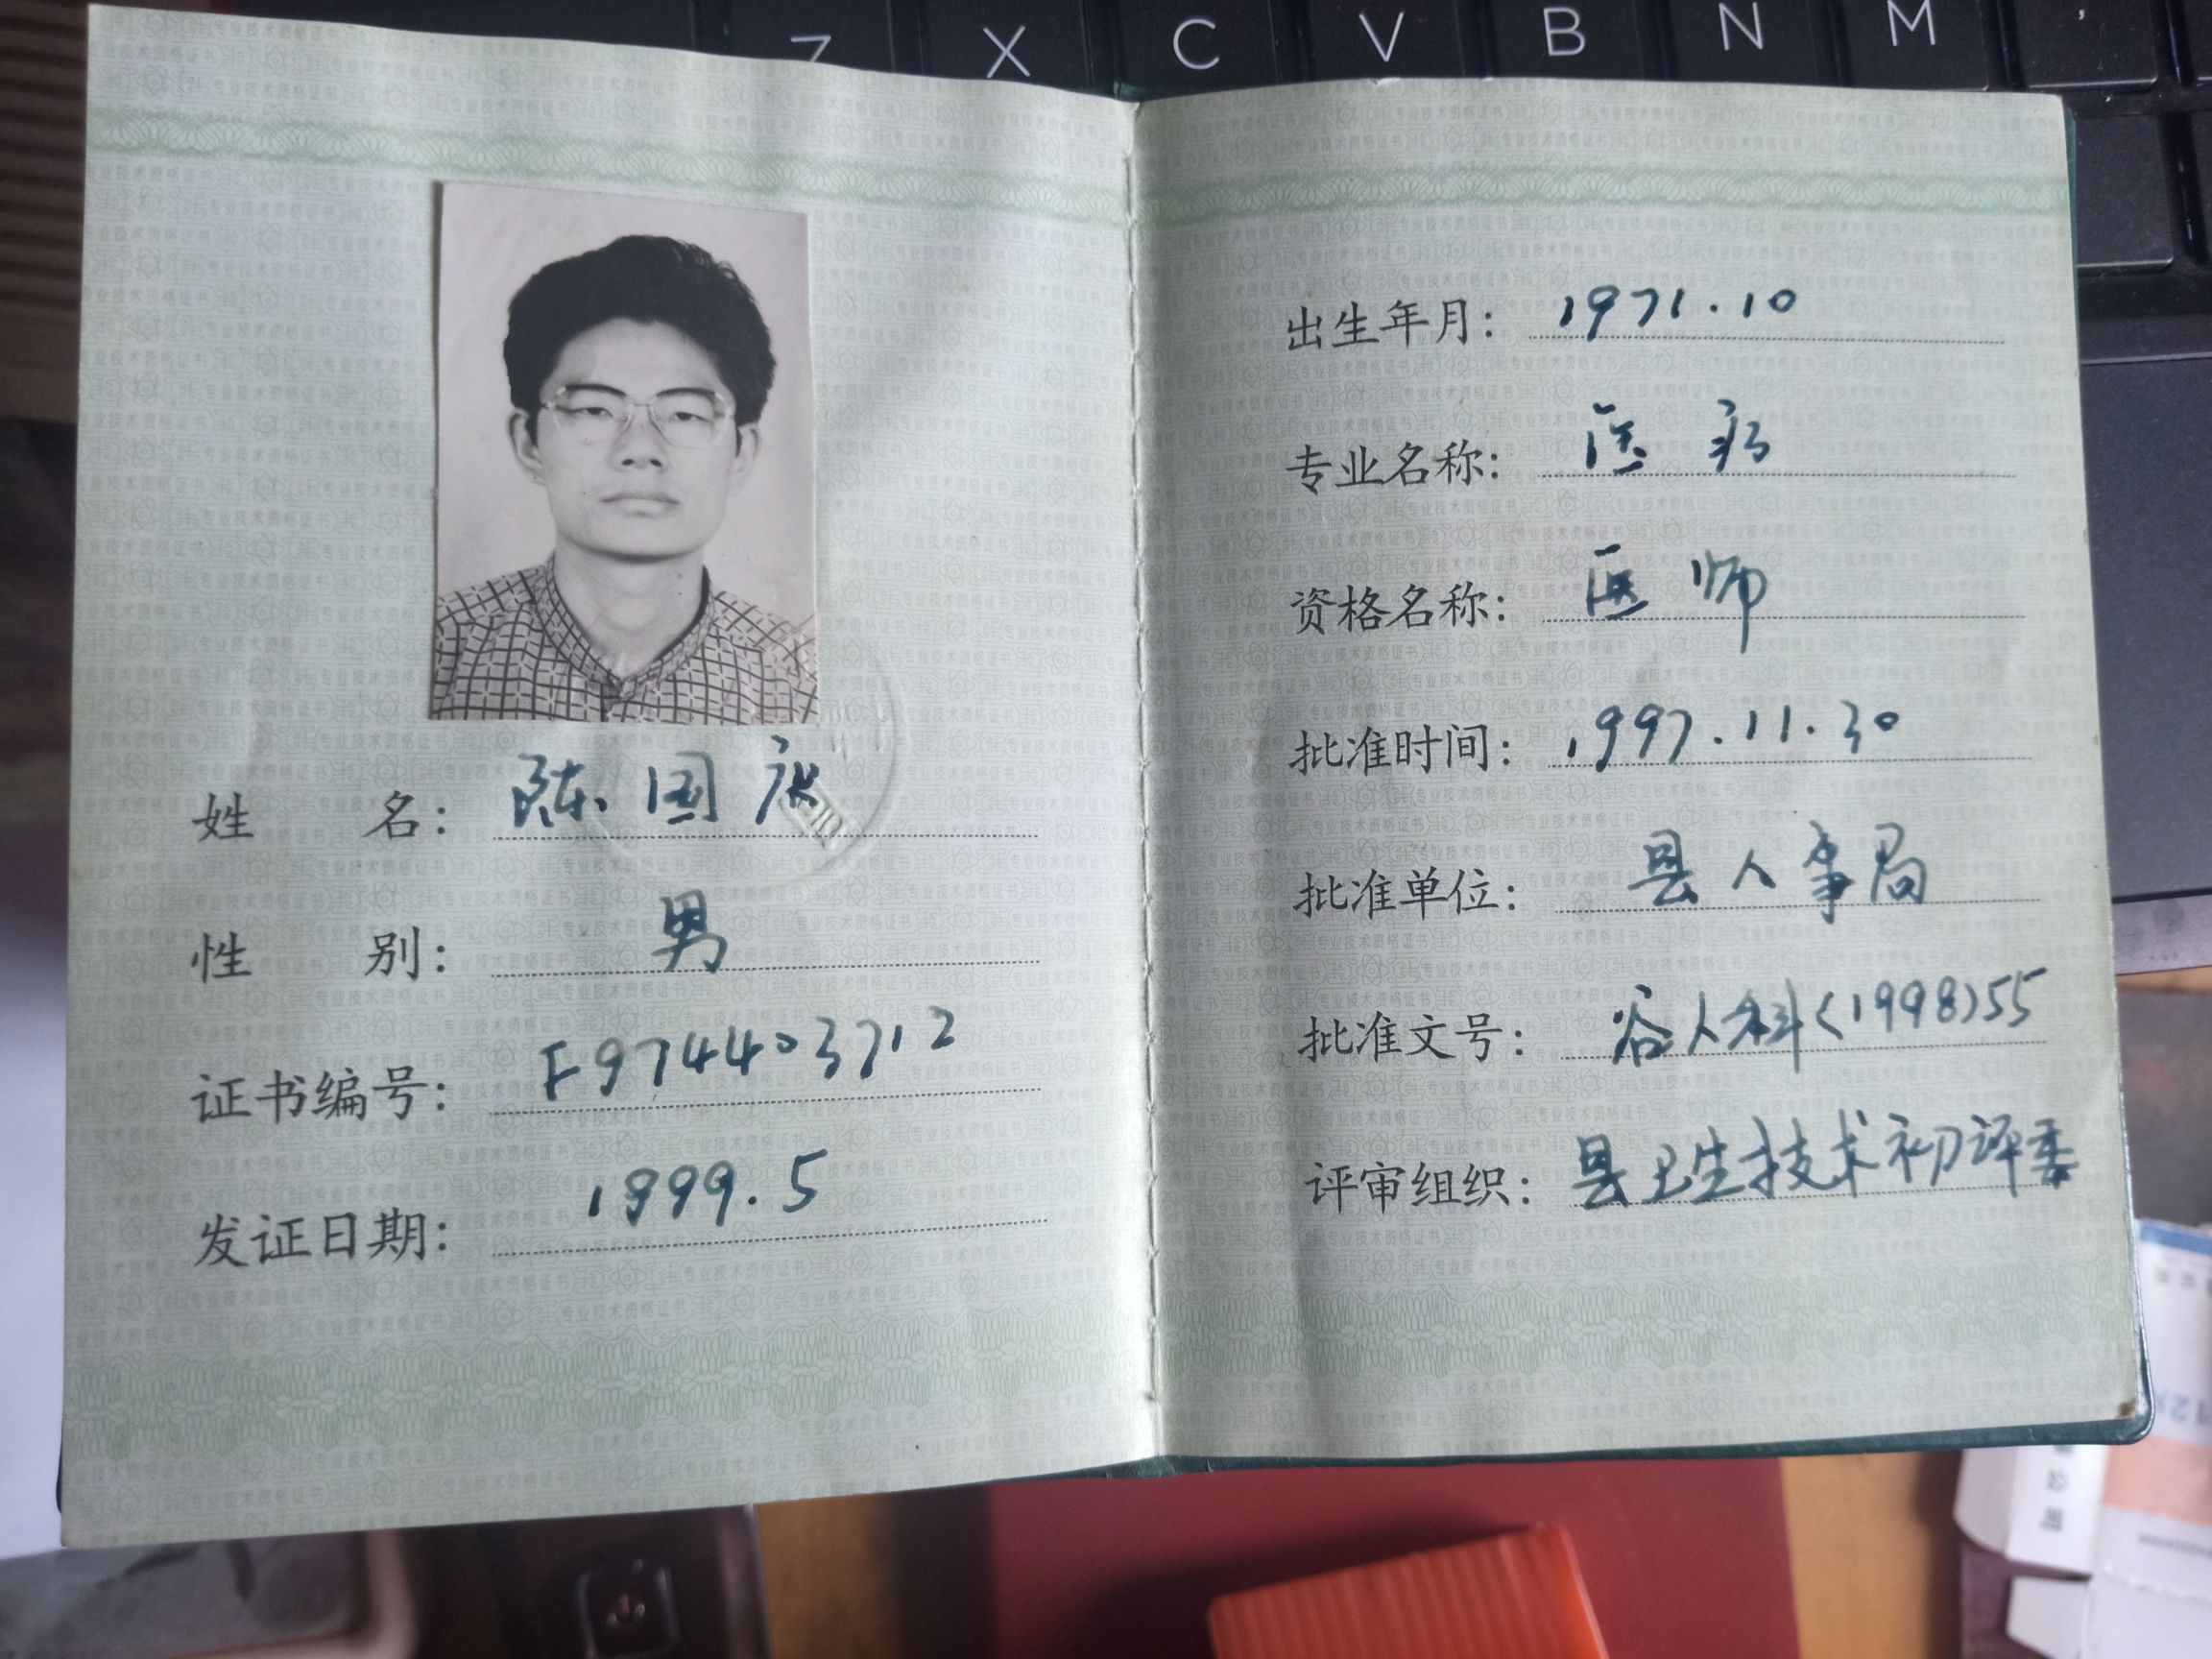 Z X C V B N M ,
姓 名: 陈国庆
性 别: 男
证书编号: F974403712
发证日期: 1999.5
出生年月: 1971.10
专业名称: 医疗
资格名称: 医师
批准时间: 1997.11.30
批准单位: 县人事局
批准文号: 谷人科(1998)55
评审组织: 县卫生技术初评委